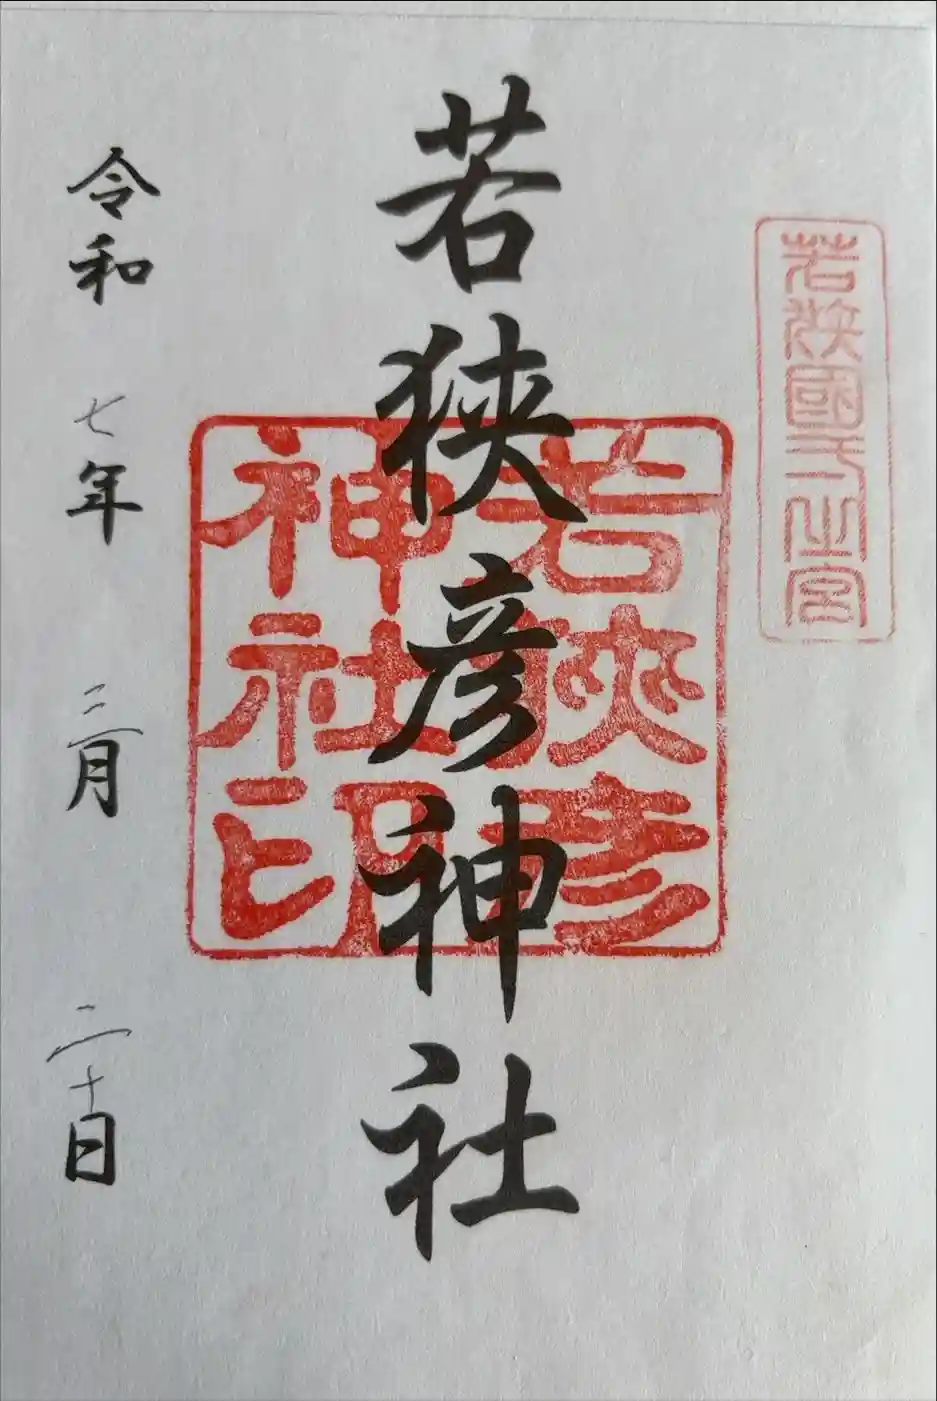 若狹國一之宮
若狭彦神社
若狹彦
神社印
令和七年三月二十日